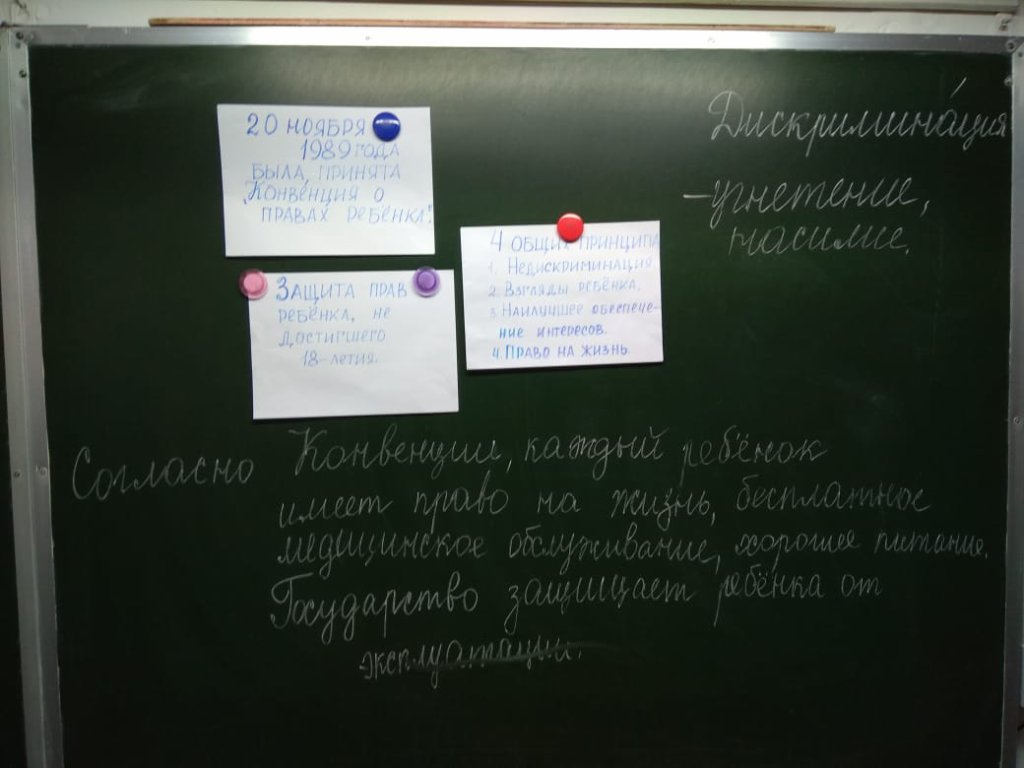 20 НОЯБРЯ
1989 ГОДА
БЫЛА, ПРИНЯТА
„КОНВЕНЦИЯ О
ПРАВАХ РЕБЁНКА".
ЗАЩИТА ПРАВ
РЕБЁНКА, НЕ
ДОСТИГШЕГО
18-ЛЕТИЯ.
4 ОБЩИХ ПРИНЦИПА
1. НЕДИСКРИМИНАЦИЯ
2. ВЗГЛЯДЫ РЕБЁНКА.
3 НАИЛУЧШЕЕ ОБЕСПЕЧЕ-
НИЕ ИНТЕРЕСОВ.
4. ПРАВО НА ЖИЗНЬ.
Дискримина́ция
-угнетение,
насилие.
Согласно Конвенции, каждый ребёнок
имеет право на жизнь, бесплатное
медицинское обслуживание, хорошее питание.
Государство защищает ребёнка от
эксплуатации.